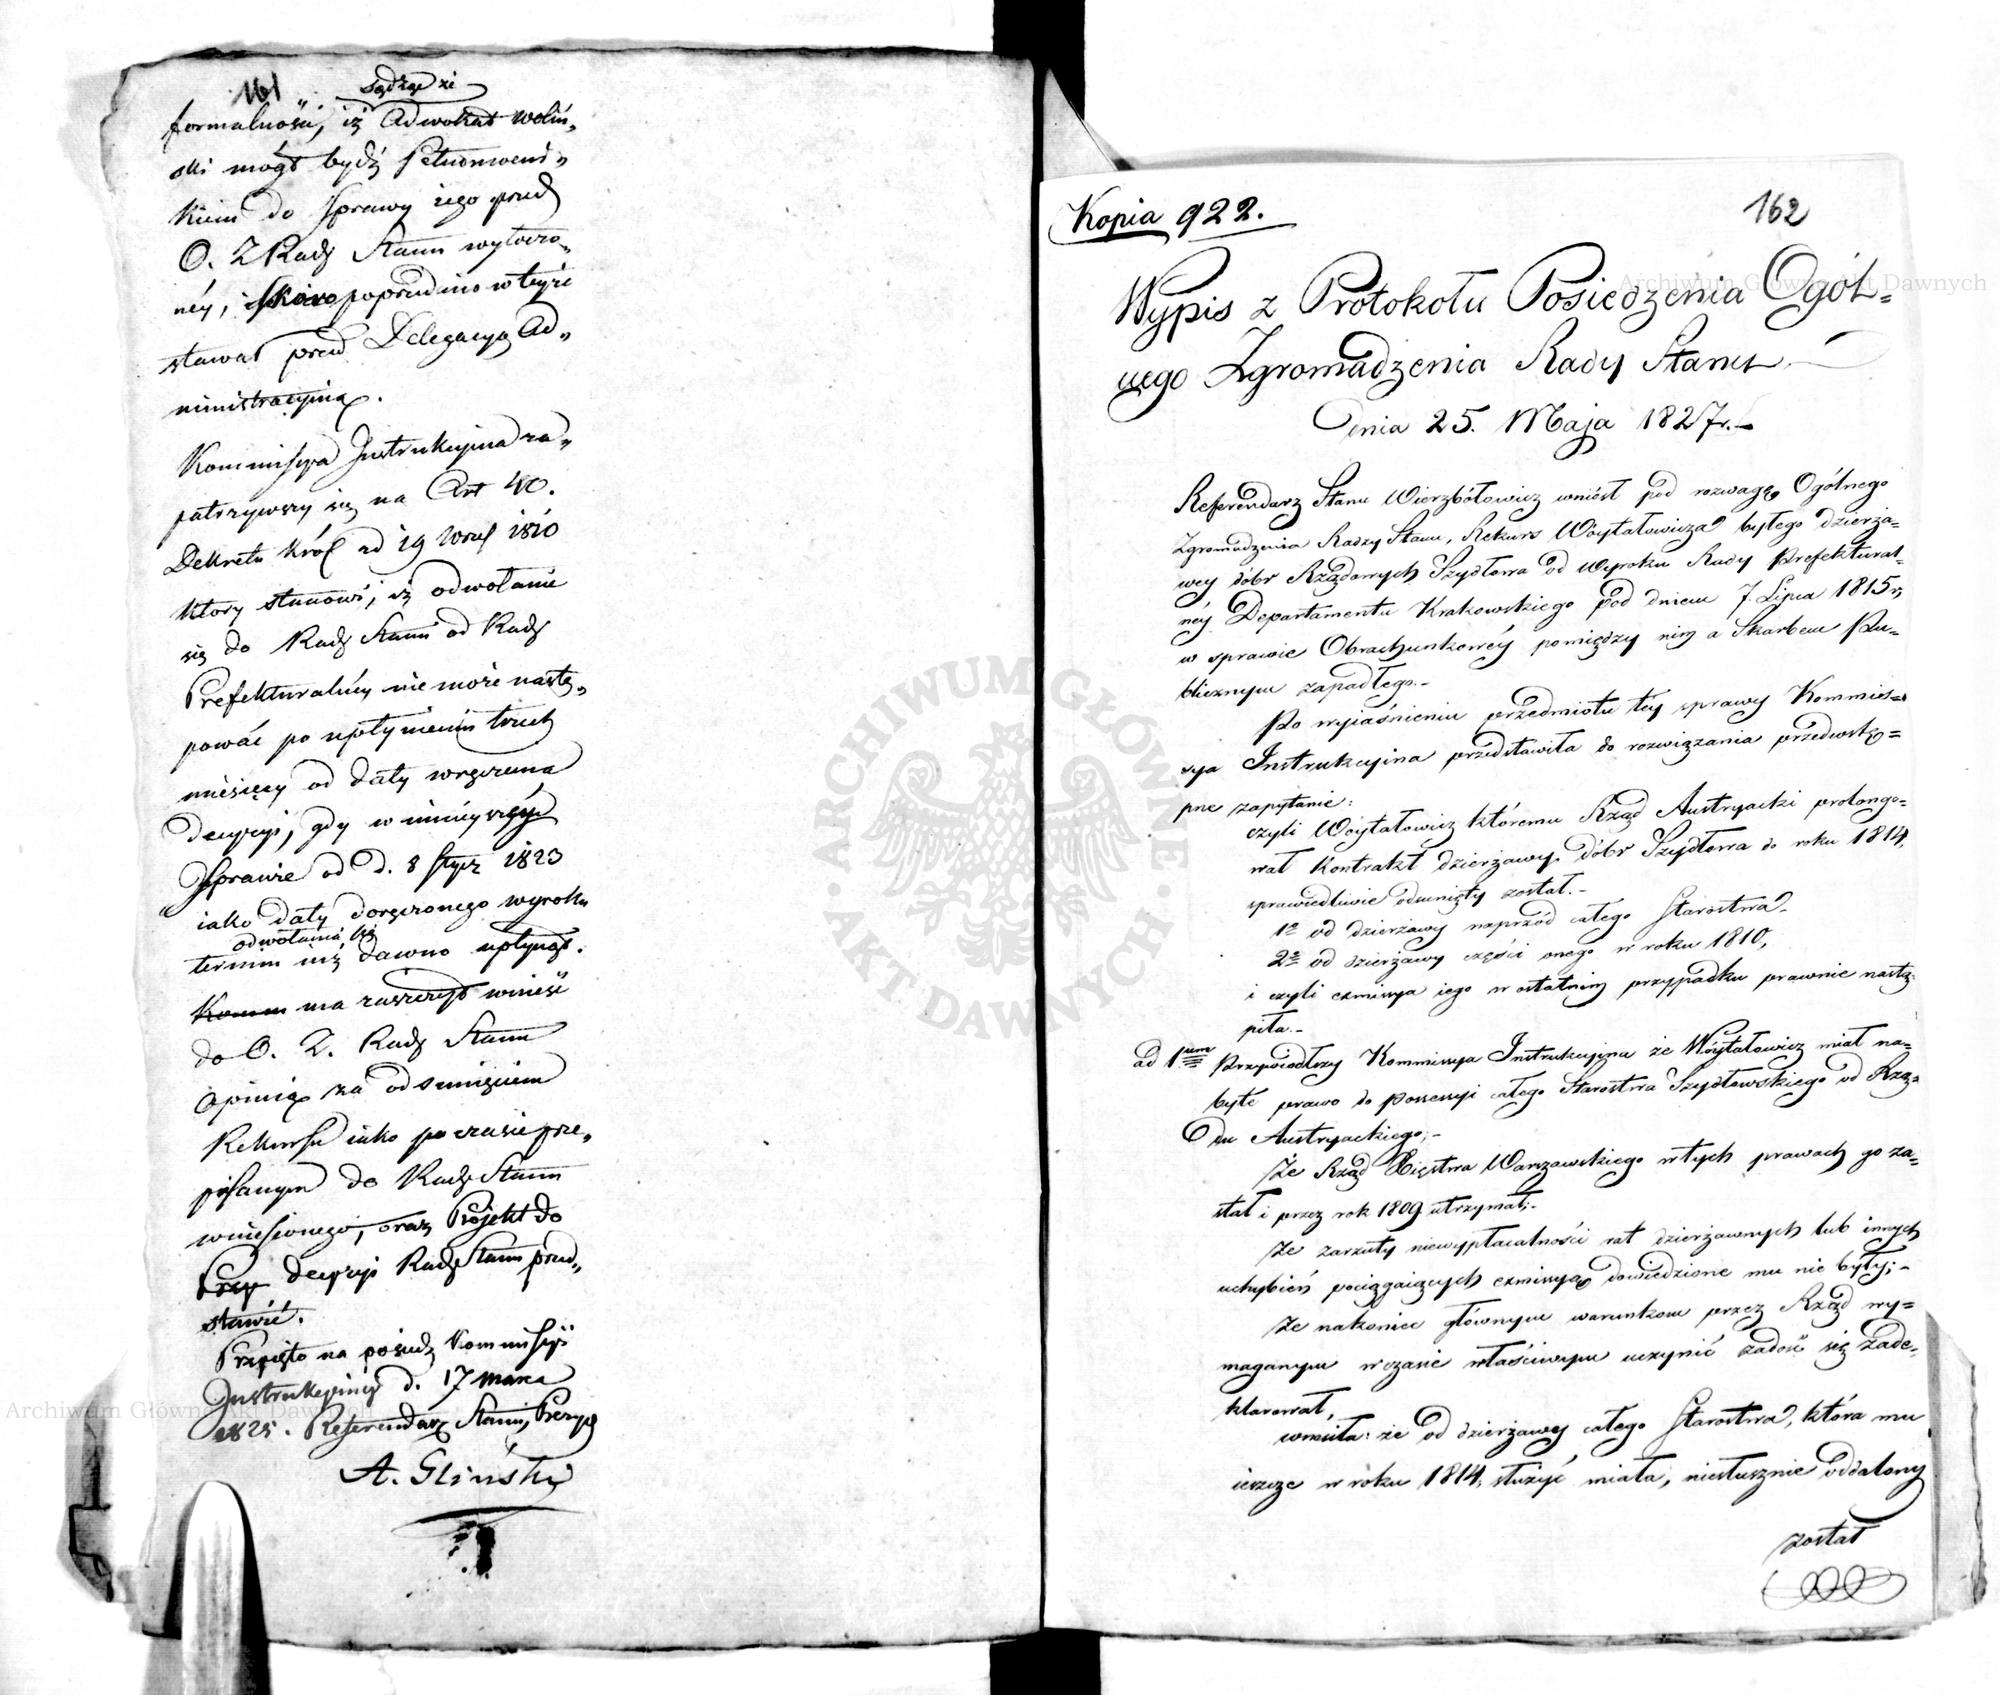 161
sądząc że
formalności, iż Adwokat Woliń„
ski mógł bydź Pełnomocni„
kiem do sprawy iego przed
O. Z Rady Stanu wytoczo„
néy, skoro poprzednio w teyże
stawał przed Delegacyą Ad„
ministracyiną.
Kommissya Instrukcyina za„
patrzywszy się na Art 40.
Dekretu Król od 19 Wrześ 1810
który stanowi, iż odwołanie
się do Rady Stanu od Rady
Prefekturalnéy nie może nastę„
pować po upłynieniu trzech
miesięcy od daty wręczenia
decyzyi, gdy w ninieyszéy
sprawie od d. 8 Stycz 1823
iako daty doręczonego wyroku
odwołania się
termin iuż dawno upłynął.
Komm ma zaszczyt wnieść
do O. Z. Rady Stanu
opinią za odsunięciem
Rekursu iako po czasie prze„
pisanym do Rady Stanu
wniesionego, oraz Projekt do
Przy decyzyi Rady Stanu przed„
stawić.
Przyięto na posiedz Kommissyi
Instrukcyinéy d. 17 marca
1825. Referendarz Stanu, Prezyd
A. Gliński
Kopia 922.
162
Wypis z Protokołu Posiedzenia Ogól=
nego Zgromadzenia Rady Stanu
Dnia 25. Maja 1827 r.
Referendarz Stanu Wierzbołowicz wniósł pod rozwagę Ogólnego
Zgromadzenia Rady Stanu, Rekurs Woytałowicza byłego dzierża=
wcy dóbr Rządowych Szydłowa od Wyroku Rady Prefektural=
néy Departamentu Krakowskiego pod dniem 7. Lipca 1815 r.
w sprawie Obrachunkowéy pomiędzy nim a Skarbem Pu=
blicznym zapadłego.-
Po wyiaśnieniu przedmiotu téy sprawy Kommis=
sya Instrukcyina przedstawiła do rozwiązania przedwstę=
pne zapytanie:
czyli Woytałowicz któremu Rząd Austryacki prolongo=
wał Kontrakt dzierżawy dóbr Szydłowa do roku 1814,
sprawiedliwie odsunięty został.-
1º od dzierżawy naprzód całego Starostwa
2º od dzierżawy części onego w roku 1810,
i czyli exmissya iego w ostatnim przypadku prawnie nastą=
piła.-
ad 1um Przywiodłszy Kommissya Instrukcyina że Woytałowicz miał na=
byte prawo do possessyi całego Starostwa Szydłowskiego od Rzą=
du Austryackiego;-
Że Rząd Xięstwa Warszawskiego w tych prawach go za=
stał i przez rok 1809 utrzymał;-
Że zarzuty niewypłacalności rat dzierżawnych lub innych
uchybień pociągaiących exmissyą dowiedzione mu nie były;-
Że nakoniec głównym warunkom przez Rząd wy=
maganym w czasie właściwym uczynić zadość się zade=
klarował,
wnosiła: że od dzierżawy całego Starostwa, która mu
ieszcze w roku 1814, służyć miała, niesłusznie oddalony
został